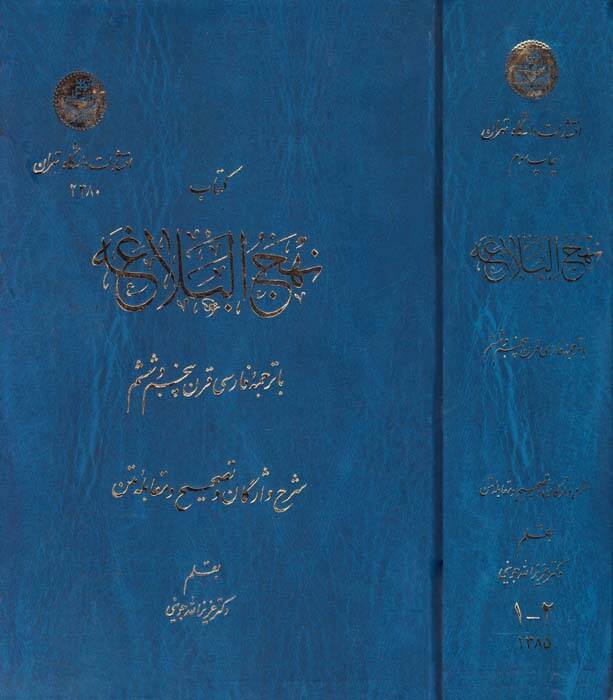 انتشارات دانشگاه تهران
۲۶۸۰
کتاب
نهج البلاغه
با ترجمهٔ فارسی قرن پنجم و ششم
شرح واژگان و تصحیح و مقابله متن
بقلم
دکتر عزیزالله جوینی
انتشارات دانشگاه تهران
چاپ سوم
نهج البلاغه
با ترجمهٔ فارسی قرن پنجم و ششم
شرح واژگان و تصحیح و مقابله متن
بقلم
دکتر عزیزالله جوینی
۱-۲
۱۳۸۵